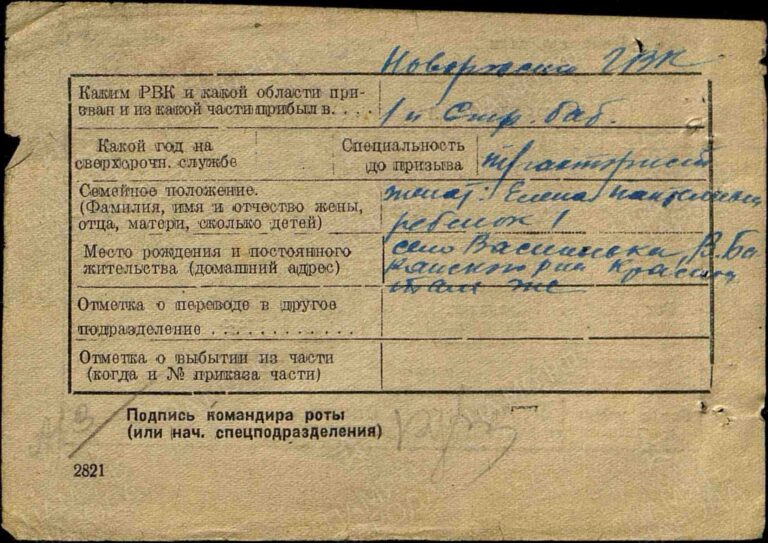 ГВК
Каким РВК и какой области при-
зван и из какой части прибыл в. . . .
1й Стр. бат.
Какой год на
сверхсрочн. службе
Специальность
до призыва
тракторист
Семейное положение.
(Фамилия, имя и отчество жены,
отца, матери, сколько детей)
женат: Елена
ребенок 1
Место рождения и постоянного
жительства (домашний адрес)
село В. Ба
там же
Отметка о переводе в другое
подразделение . . . . . . . . . . . .
Отметка о выбытии из части
(когда и № приказа части)
Подпись командира роты
(или нач. спецподразделения)
2821